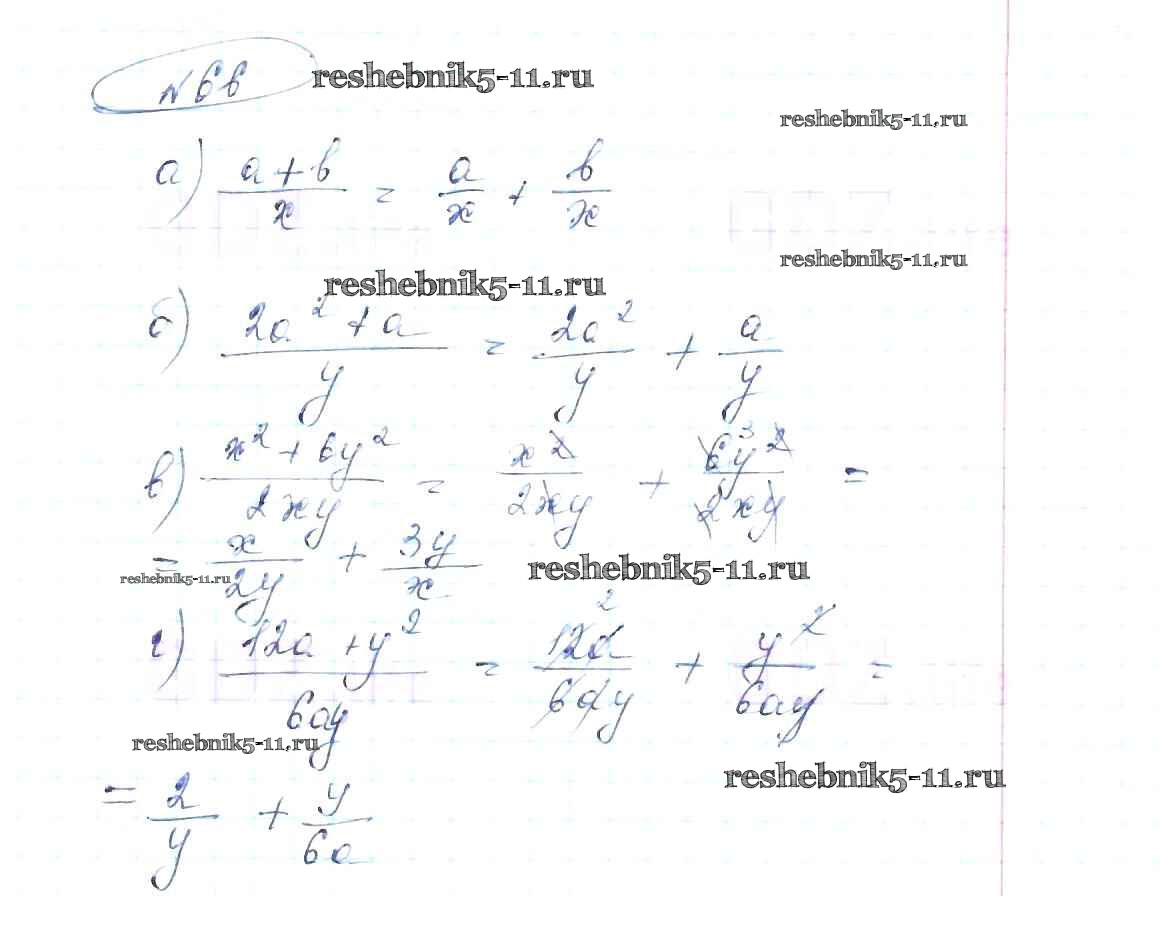 №66 reshebnik5-11.ru
reshebnik5-11.ru
а) (a+b)/x = a/x + b/x
reshebnik5-11.ru
reshebnik5-11.ru
б) (2a²+a)/y = 2a²/y + a/y
в) (x²+6y²)/(2xy) = x²/(2xy) + 6³y²/(2xy) =
= x/(2y) + 3y/x reshebnik5-11.ru
reshebnik5-11.ru
г) (12a+y²)/(6ay) = 12a²/(6ay) + y²/(6ay) =
reshebnik5-11.ru
reshebnik5-11.ru
= 2/y + y/(6a)